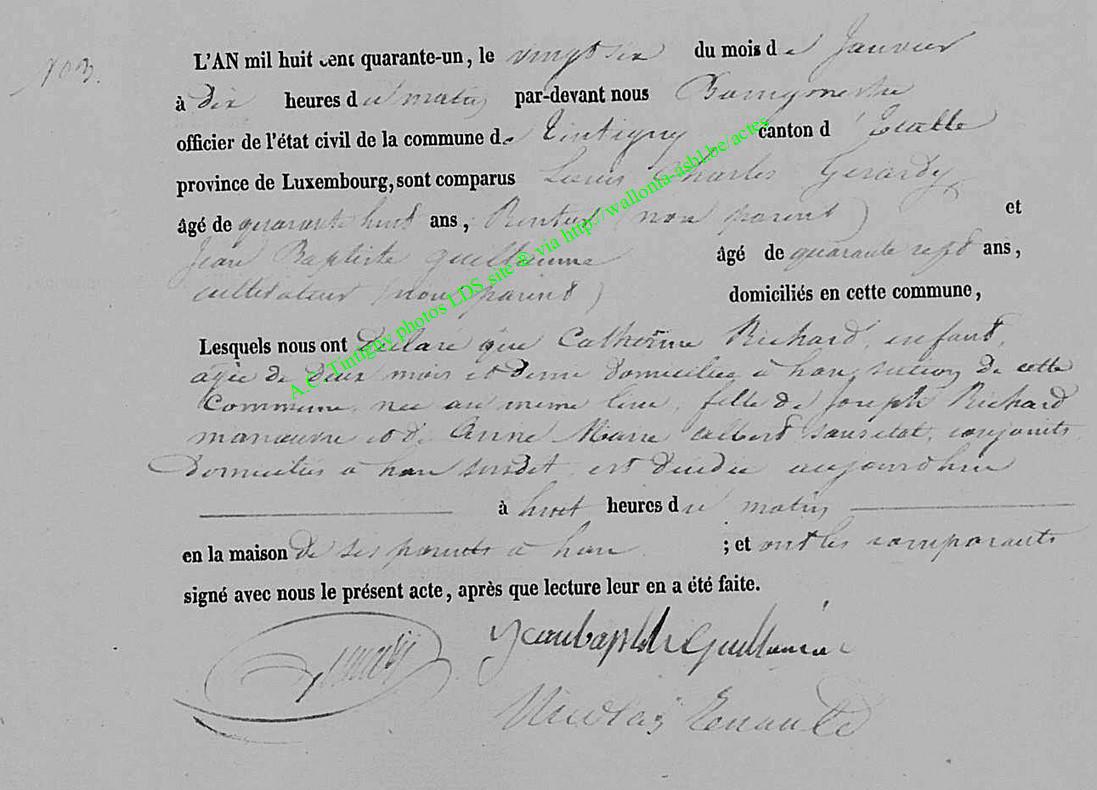 103.
L'AN mil huit cent quarante-un, le vingt six du mois de Janvier
à dix heures du matin par-devant nous Bourgmestre
officier de l'état civil de la commune de Tintigny canton d'Etalle
province de Luxembourg, sont comparus Louis Charles Gerardy
âgé de quarante huit ans, Rentier (non parent) et
Jean Baptiste Guillaume âgé de quarante sept ans,
cultivateur (non parent) domiciliés en cette commune,
Lesquels nous ont déclaré que Catherine Richard, enfant,
agée de deux mois et demi domiciliée à han, section de cette
Commune, née au meme lieu, fille de Joseph Richard
manœuvre et d'Anne Marie albert sans etat, conjoints
Domiciliés à han susdit, est décédée aujourd'hui
à huit heures du matin
en la maison de ses parents à han ; et ont les comparants
signé avec nous le présent acte, après que lecture leur en a été faite.
Jean baptiste Guillaume
Nicolas
A.C. Tintigny photos LDS site @ via http://wallonia-asbl.be/actes